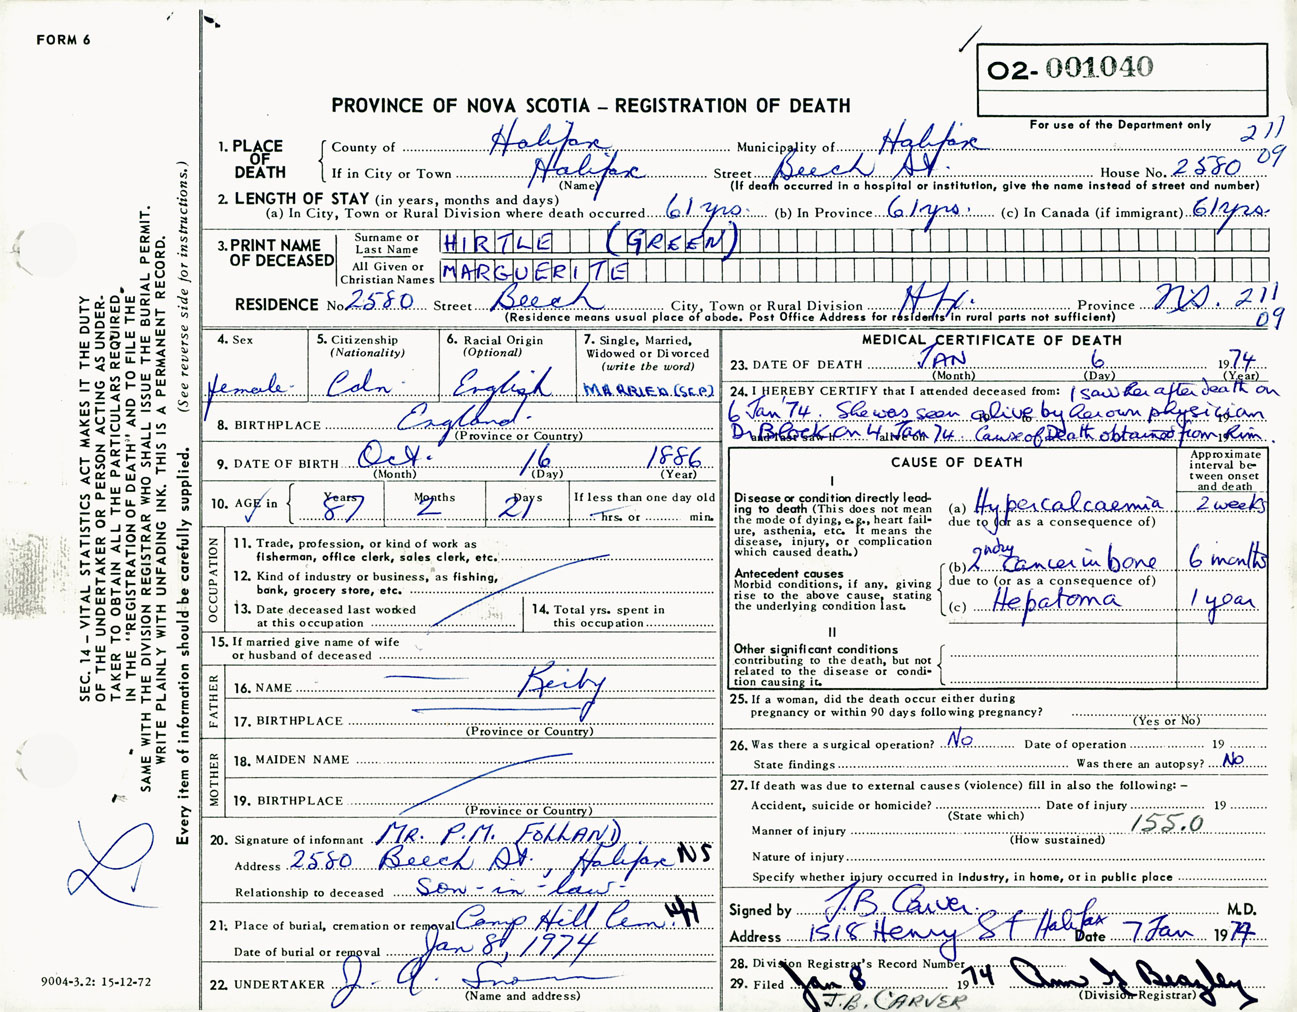 FORM 6
O2-001040
PROVINCE OF NOVA SCOTIA – REGISTRATION OF DEATH
For use of the Department only
211
09
1. PLACE OF DEATH
County of Halifax Municipality of Halifax
If in City or Town Halifax Street Beech St. House No. 2580
(Name) (If death occurred in a hospital or institution, give the name instead of street and number)
2. LENGTH OF STAY (in years, months and days)
(a) In City, Town or Rural Division where death occurred 61 yrs. (b) In Province 61 yrs. (c) In Canada (if immigrant) 61 yrs.
3. PRINT NAME OF DECEASED
Surname or Last Name HIRTLE (GREEN)
All Given or Christian Names MARGUERITE
RESIDENCE No. 2580 Street Beech City, Town or Rural Division Hfx. Province N.S. 211
(Residence means usual place of abode. Post Office Address for residents in rural parts not sufficient) 09
4. Sex
female
5. Citizenship
(Nationality)
Cdn.
6. Racial Origin
(Optional)
English
7. Single, Married,
Widowed or Divorced
(write the word)
MARRIED (SEP)
8. BIRTHPLACE England.
(Province or Country)
9. DATE OF BIRTH Oct. 16 1886
(Month) (Day) (Year)
10. AGE in Years 87 Months 2 Days 21 If less than one day old
hrs. or min.
OCCUPATION
11. Trade, profession, or kind of work as
fisherman, office clerk, sales clerk, etc.
12. Kind of industry or business, as fishing,
bank, grocery store, etc.
13. Date deceased last worked
at this occupation
14. Total yrs. spent in
this occupation
15. If married give name of wife
or husband of deceased
FATHER
16. NAME
17. BIRTHPLACE
(Province or Country)
MOTHER
18. MAIDEN NAME
19. BIRTHPLACE
(Province or Country)
20. Signature of informant MR. P.M. FOLLAND
Address 2580 Beech St., Halifax NS
Relationship to deceased Son-in-law
21. Place of burial, cremation or removal Camp Hill Cem.
Date of burial or removal Jan 8, 1974
22. UNDERTAKER J. A. Snow
(Name and address)
MEDICAL CERTIFICATE OF DEATH
23. DATE OF DEATH JAN 6 1974
(Month) (Day) (Year)
24. I HEREBY CERTIFY that I attended deceased from: I saw her after death on
6 Jan '74. She was seen alive by her own physician
Dr Block on 4 Jan 74 Cause of Death obtained from him.
CAUSE OF DEATH
Approximate interval between onset and death
I
Disease or condition directly leading to death (This does not mean the mode of dying, e.g., heart failure, asthenia, etc. It means the disease, injury, or complication which caused death.)
(a) Hypercalcaemia 2 weeks
due to (or as a consequence of)
Antecedent causes
Morbid conditions, if any, giving rise to the above cause, stating the underlying condition last.
(b) 2ndry Cancer in bone 6 months
due to (or as a consequence of)
(c) Hepatoma 1 year
II
Other significant conditions
contributing to the death, but not related to the disease or condition causing it.
25. If a woman, did the death occur either during
pregnancy or within 90 days following pregnancy?
(Yes or No)
26. Was there a surgical operation? No Date of operation 19
State findings Was there an autopsy? No
27. If death was due to external causes (violence) fill in also the following: –
Accident, suicide or homicide? Date of injury 19
(State which)
Manner of injury 155.0
(How sustained)
Nature of injury
Specify whether injury occurred in industry, in home, or in public place
Signed by J.B Carver. M.D.
Address 1518 Henry St Halifax Date 7 Jan 1974
28. Division Registrar's Record Number
29. Filed Jan 8 1974
(Division Registrar)
J.B. CARVER
SEC. 14 – VITAL STATISTICS ACT MAKES IT THE DUTY
OF THE UNDERTAKER OR PERSON ACTING AS UNDER-
TAKER TO OBTAIN ALL THE PARTICULARS REQUIRED
IN THE "REGISTRATION OF DEATH" AND TO FILE THE
SAME WITH THE DIVISION REGISTRAR WHO SHALL ISSUE THE BURIAL PERMIT.
WRITE PLAINLY WITH UNFADING INK. THIS IS A PERMANENT RECORD.
Every item of information should be carefully supplied. (See reverse side for instructions.)
9004-3.2: 15-12-72